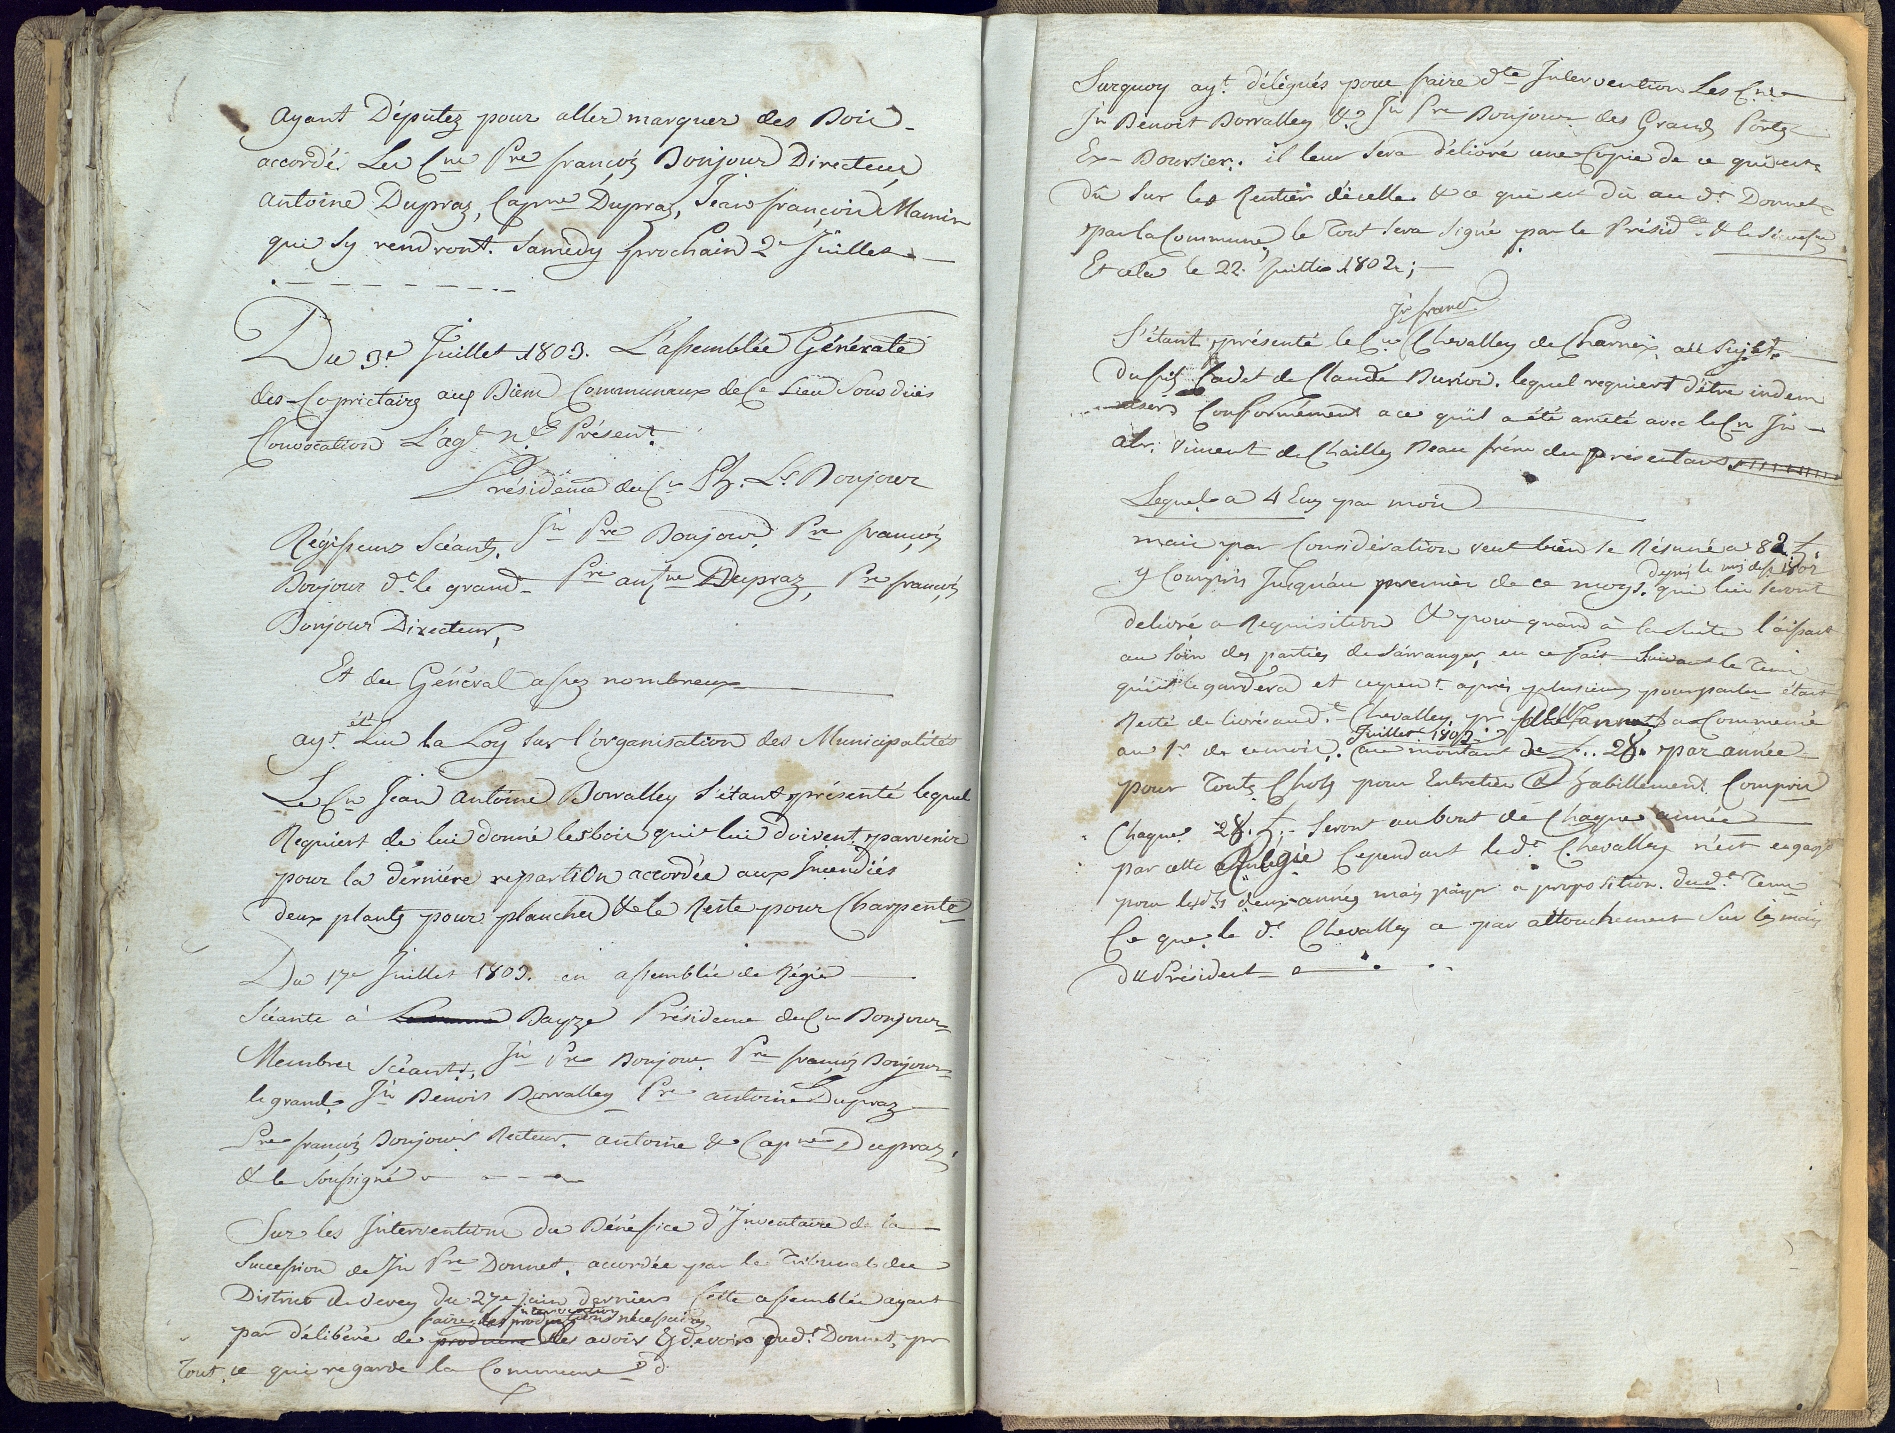 ayant Députez pour aller marquer des Bois
accordé. Les Cns Pre françois Bonjour Directeur
antoine Dupraz, Capne Dupraz, Jean françois Mamin
qui sy rendront. Samedy prochain 2e Juillet
Du 3e Juillet 1803. L'assemblée Générale
des Copriétairs aux Biens Communaux de Ce Lieu Sous düe
Convocation L'agt nal Présent.
Présidence du Cn Ph. Ls Bonjour
Régisseurs Séants, Jn Pre Bonjour, Pre françois
Bonjour dt le grand Pre antne Dupraz, Pre françois
Bonjour Directeur,
Et du Général assez nombreux
été
ayt. Lue la Loy sur l'organisation des Municipalités
Le Cn Jean antoine Borralley s'étant présenté lequel
Requiert de lui donné les bois qui lui doivent parvenir
pour la derniére repartition accordée aux Incendiés
deux plants pour plancher & le Reste pour Charpente
Du 17e Juillet 1803. en assemblée de Régie
Séante à Bayze Présidence du Cn Bonjour
Membres Séants, Jn Pre Bonjour Pre françois Bonjour
le grand, Jn Benoit Borralley Pre antoine Dupraz
Pre françois Bonjour Recteur. antoine & Capne Dupraz,
& le soussigné
Sur les Intervention du Bénéfice d'Inventaire de la
Succession de Jn Pre Donnet, accordée par le Tribunal du
District de Vevey du 27e Juin dernier Cette assemblée ayant
Intervention
faire les productions nécessaires
par délibéré de produire les avoir & devoir dudt Donnet, pr
Tout ce qui regarde la Commune
Surquoy ayt. délégués pour faire dte Intervention Les Cns
Jn Benoit Borralley & Jn Pre Bonjour des Grands Portes
Ex-Boursier. il leur sera délivré une Copie de ce qui est
dû sur les Rentier d'icelle & ce qui est dû au dt Donnet
par la Commune, le tout sera signé par le Présidce & le Sécretre
Et cela le 22. Juillet 1802;
Jn francs
S'étant présenté le Cn Chevalley de Charnex au sujet
du fils Cadet de Claude Burior. lequel requiert d'être indem
niser Conformément a ce qu'il a été arrêté avec le Cn Jn
abr. Vincent de Chailly Beau frére du présentant
Lequel a 4 Eus par mois
mais par Considération veut bien se Résumé a 82 L.
depuis le mis de 1802
y Compris Jusqu'au premier de ce moys. qui lui seront
delivré a Requisition & pour quand à la suite l'aissant
au soin des parties de s'arranger, en ce fait Suivant le Tems
qu'il le gardera et cepent. aprés plusieurs pourparler étant
Resté de livrés audt Chevalley, pr a Commencé
Juillet 1802
au 1er de ce mois, au montant de L.. 28. par année
pour Touts Chose pour Entretien & habillement Compris
Chaque 28. L. seront au bout de Chaque année
par cette Régie Cependant ledt Chevalley n'est engagé
pour lesdts deux années mais payer a proposition dudt Tems
Ce que le dt Chevalley a par attouchement sur les mains
du Président